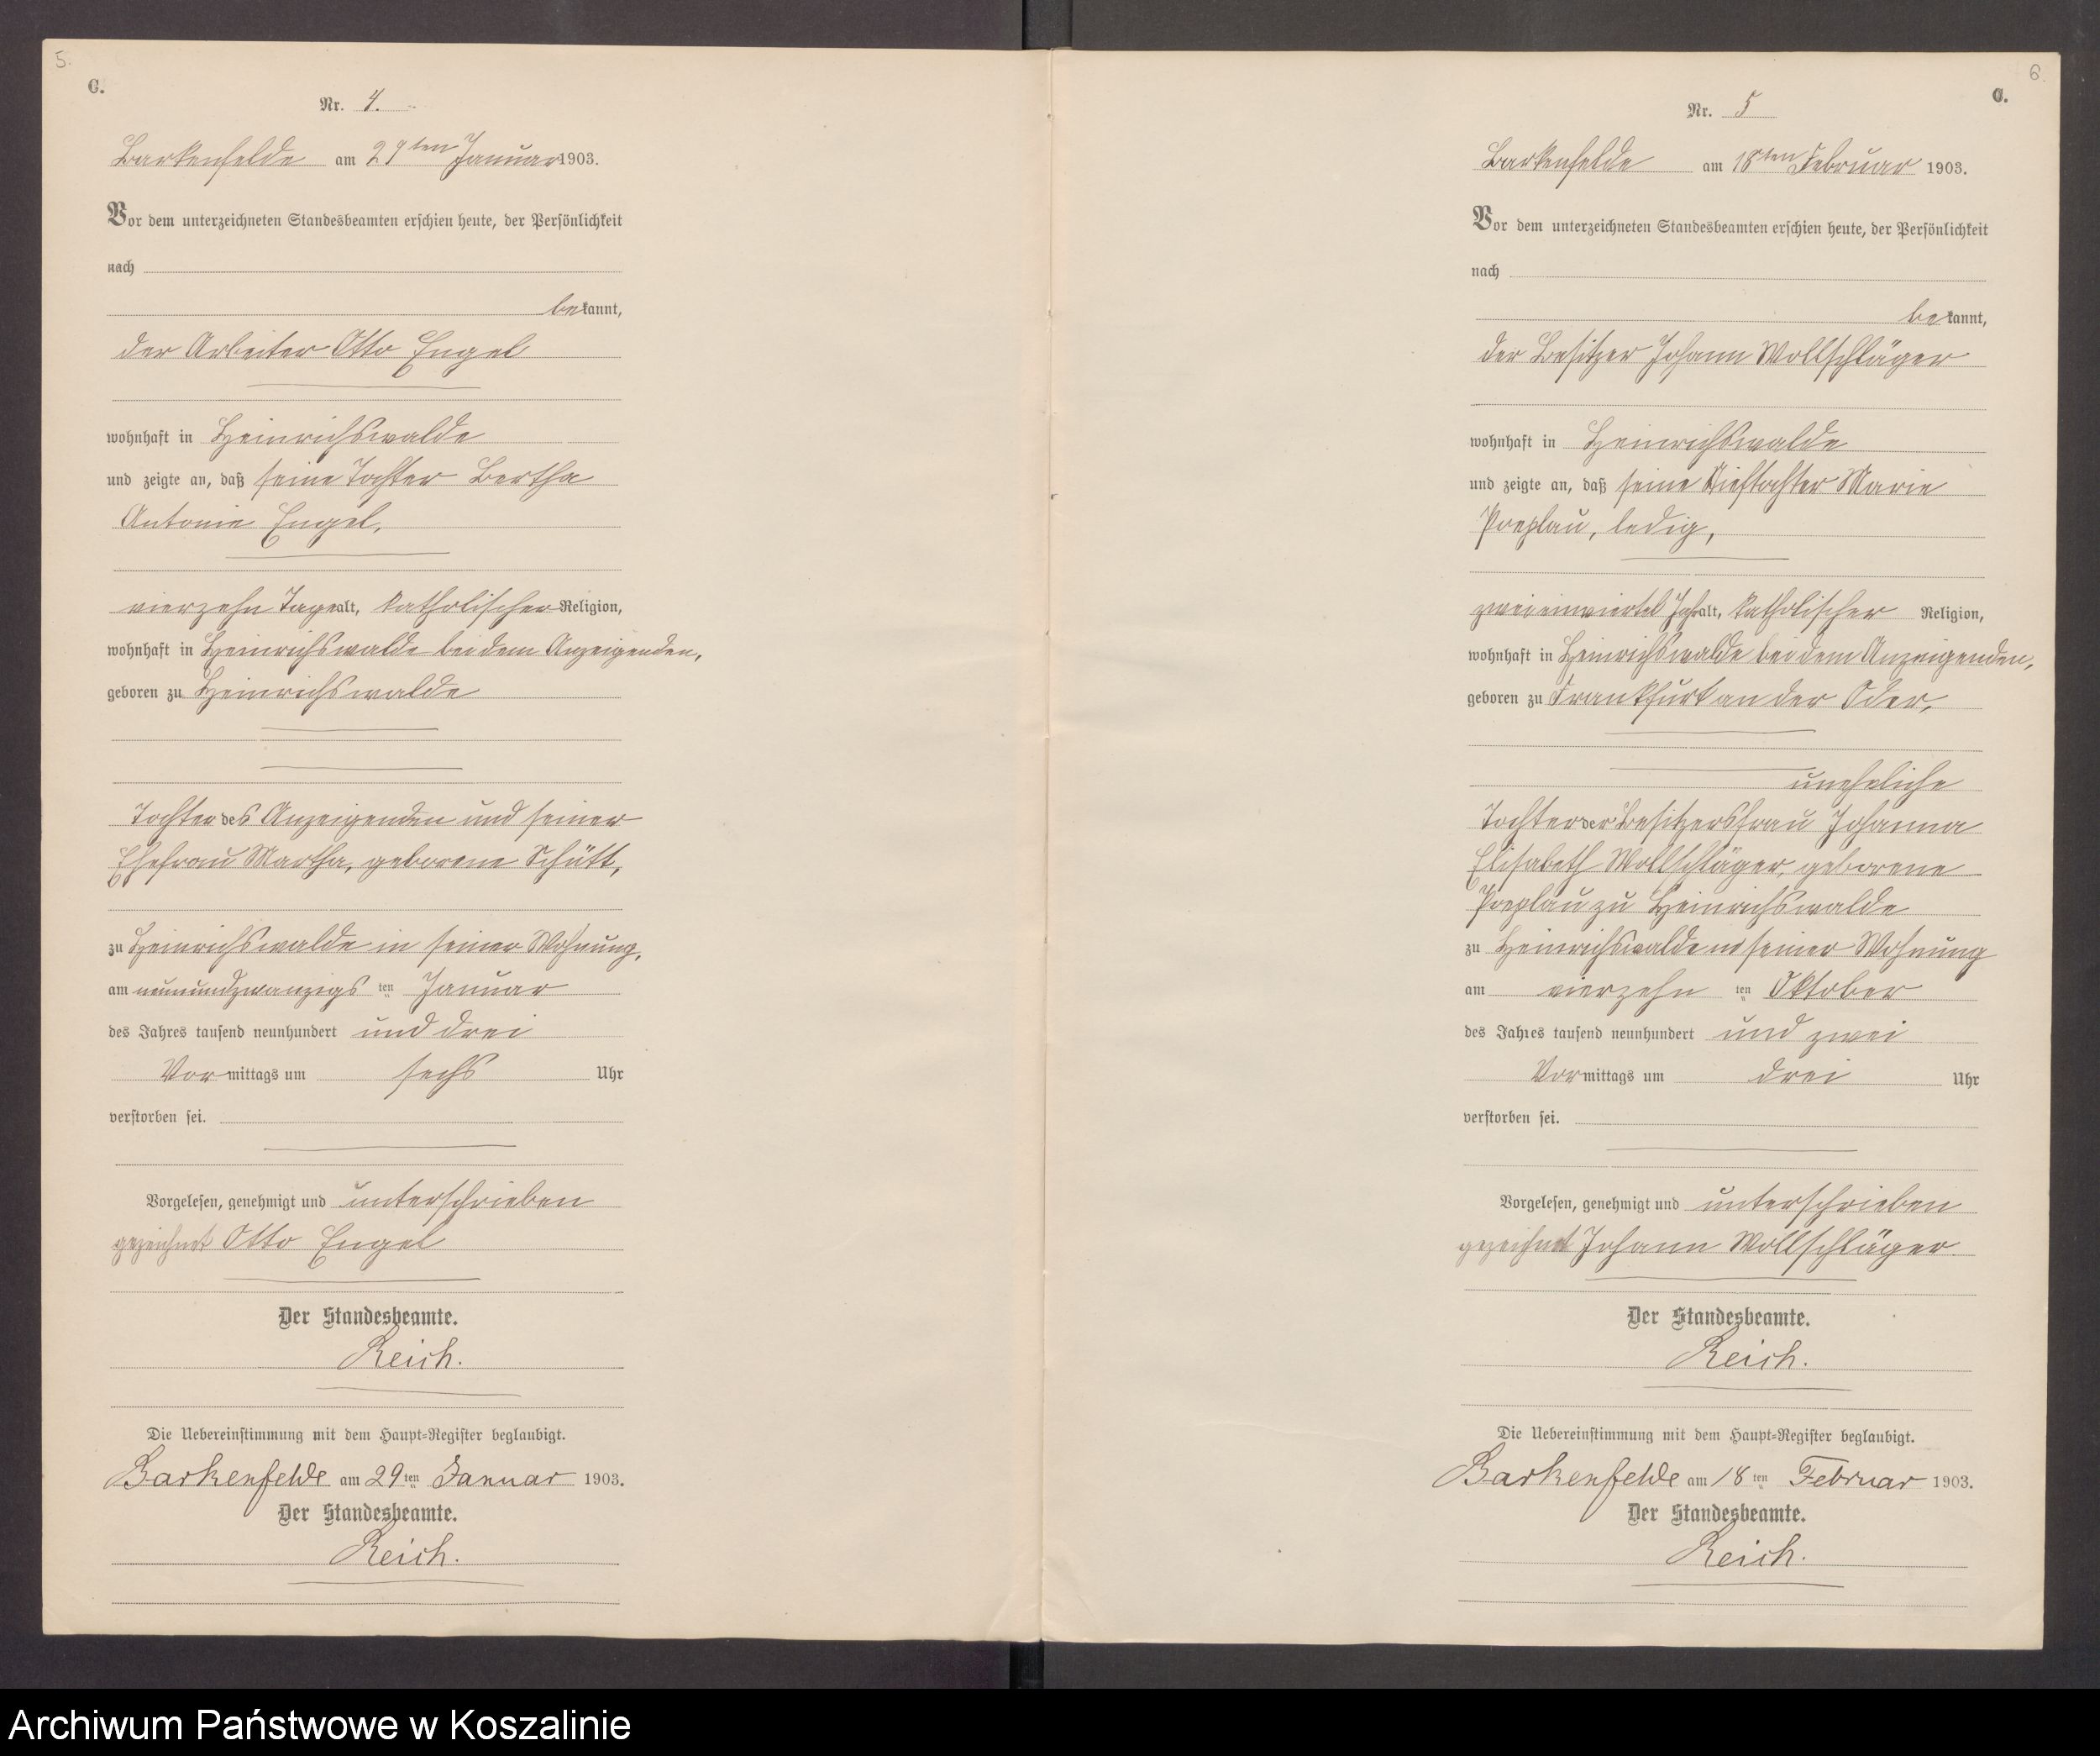 5.
C.
Nr. 4.
Barkenfelde am 29ten Januar 1903.
Vor dem unterzeichneten Standesbeamten erschien heute, der Persönlichkeit
nach
bekannt,
der Arbeiter Otto Engel
wohnhaft in Heinrichswalde
und zeigte an, daß seine Tochter Bertha
Antonie Engel,
vierzehn Tage alt, katholischer Religion,
wohnhaft in Heinrichswalde bei dem Anzeigenden,
geboren zu Heinrichswalde
Tochter des Anzeigenden und seiner
Ehefrau Martha, geborene Schütt,
zu Heinrichswalde in seiner Wohnung,
am neunundzwanzigsten Januar
des Jahres tausend neunhundert und drei
Vormittags um sechs Uhr
verstorben sei.
Vorgelesen, genehmigt und unterschrieben
gezeichnet Otto Engel
Der Standesbeamte.
Reich.
Die Uebereinstimmung mit dem Haupt-Register beglaubigt.
Barkenfelde am 29ten Januar 1903.
Der Standesbeamte.
Reich.
6.
C.
Nr. 5
Barkenfelde am 18ten Februar 1903.
Vor dem unterzeichneten Standesbeamten erschien heute, der Persönlichkeit
nach
bekannt,
der Besitzer Johann Wollschläger
wohnhaft in Heinrichswalde
und zeigte an, daß seine Stieftochter Marie
ledig,
zweieinviertel Jahr alt, katholischer Religion,
wohnhaft in Heinrichswalde bei dem Anzeigenden,
geboren zu Frankfurt an der Oder,
uneheliche
Tochter der Besitzersfrau Johanna
Elisabeth Wollschläger, geborene
zu Heinrichswalde
zu Heinrichswalde in seiner Wohnung
am vierzehnten Oktober
des Jahres tausend neunhundert und zwei
Vormittags um drei Uhr
verstorben sei.
Vorgelesen, genehmigt und unterschrieben
gezeichnet Johann Wollschläger
Der Standesbeamte.
Reich.
Die Uebereinstimmung mit dem Haupt-Register beglaubigt.
Barkenfelde am 18ten Februar 1903.
Der Standesbeamte.
Reich.
Archiwum Państwowe w Koszalinie